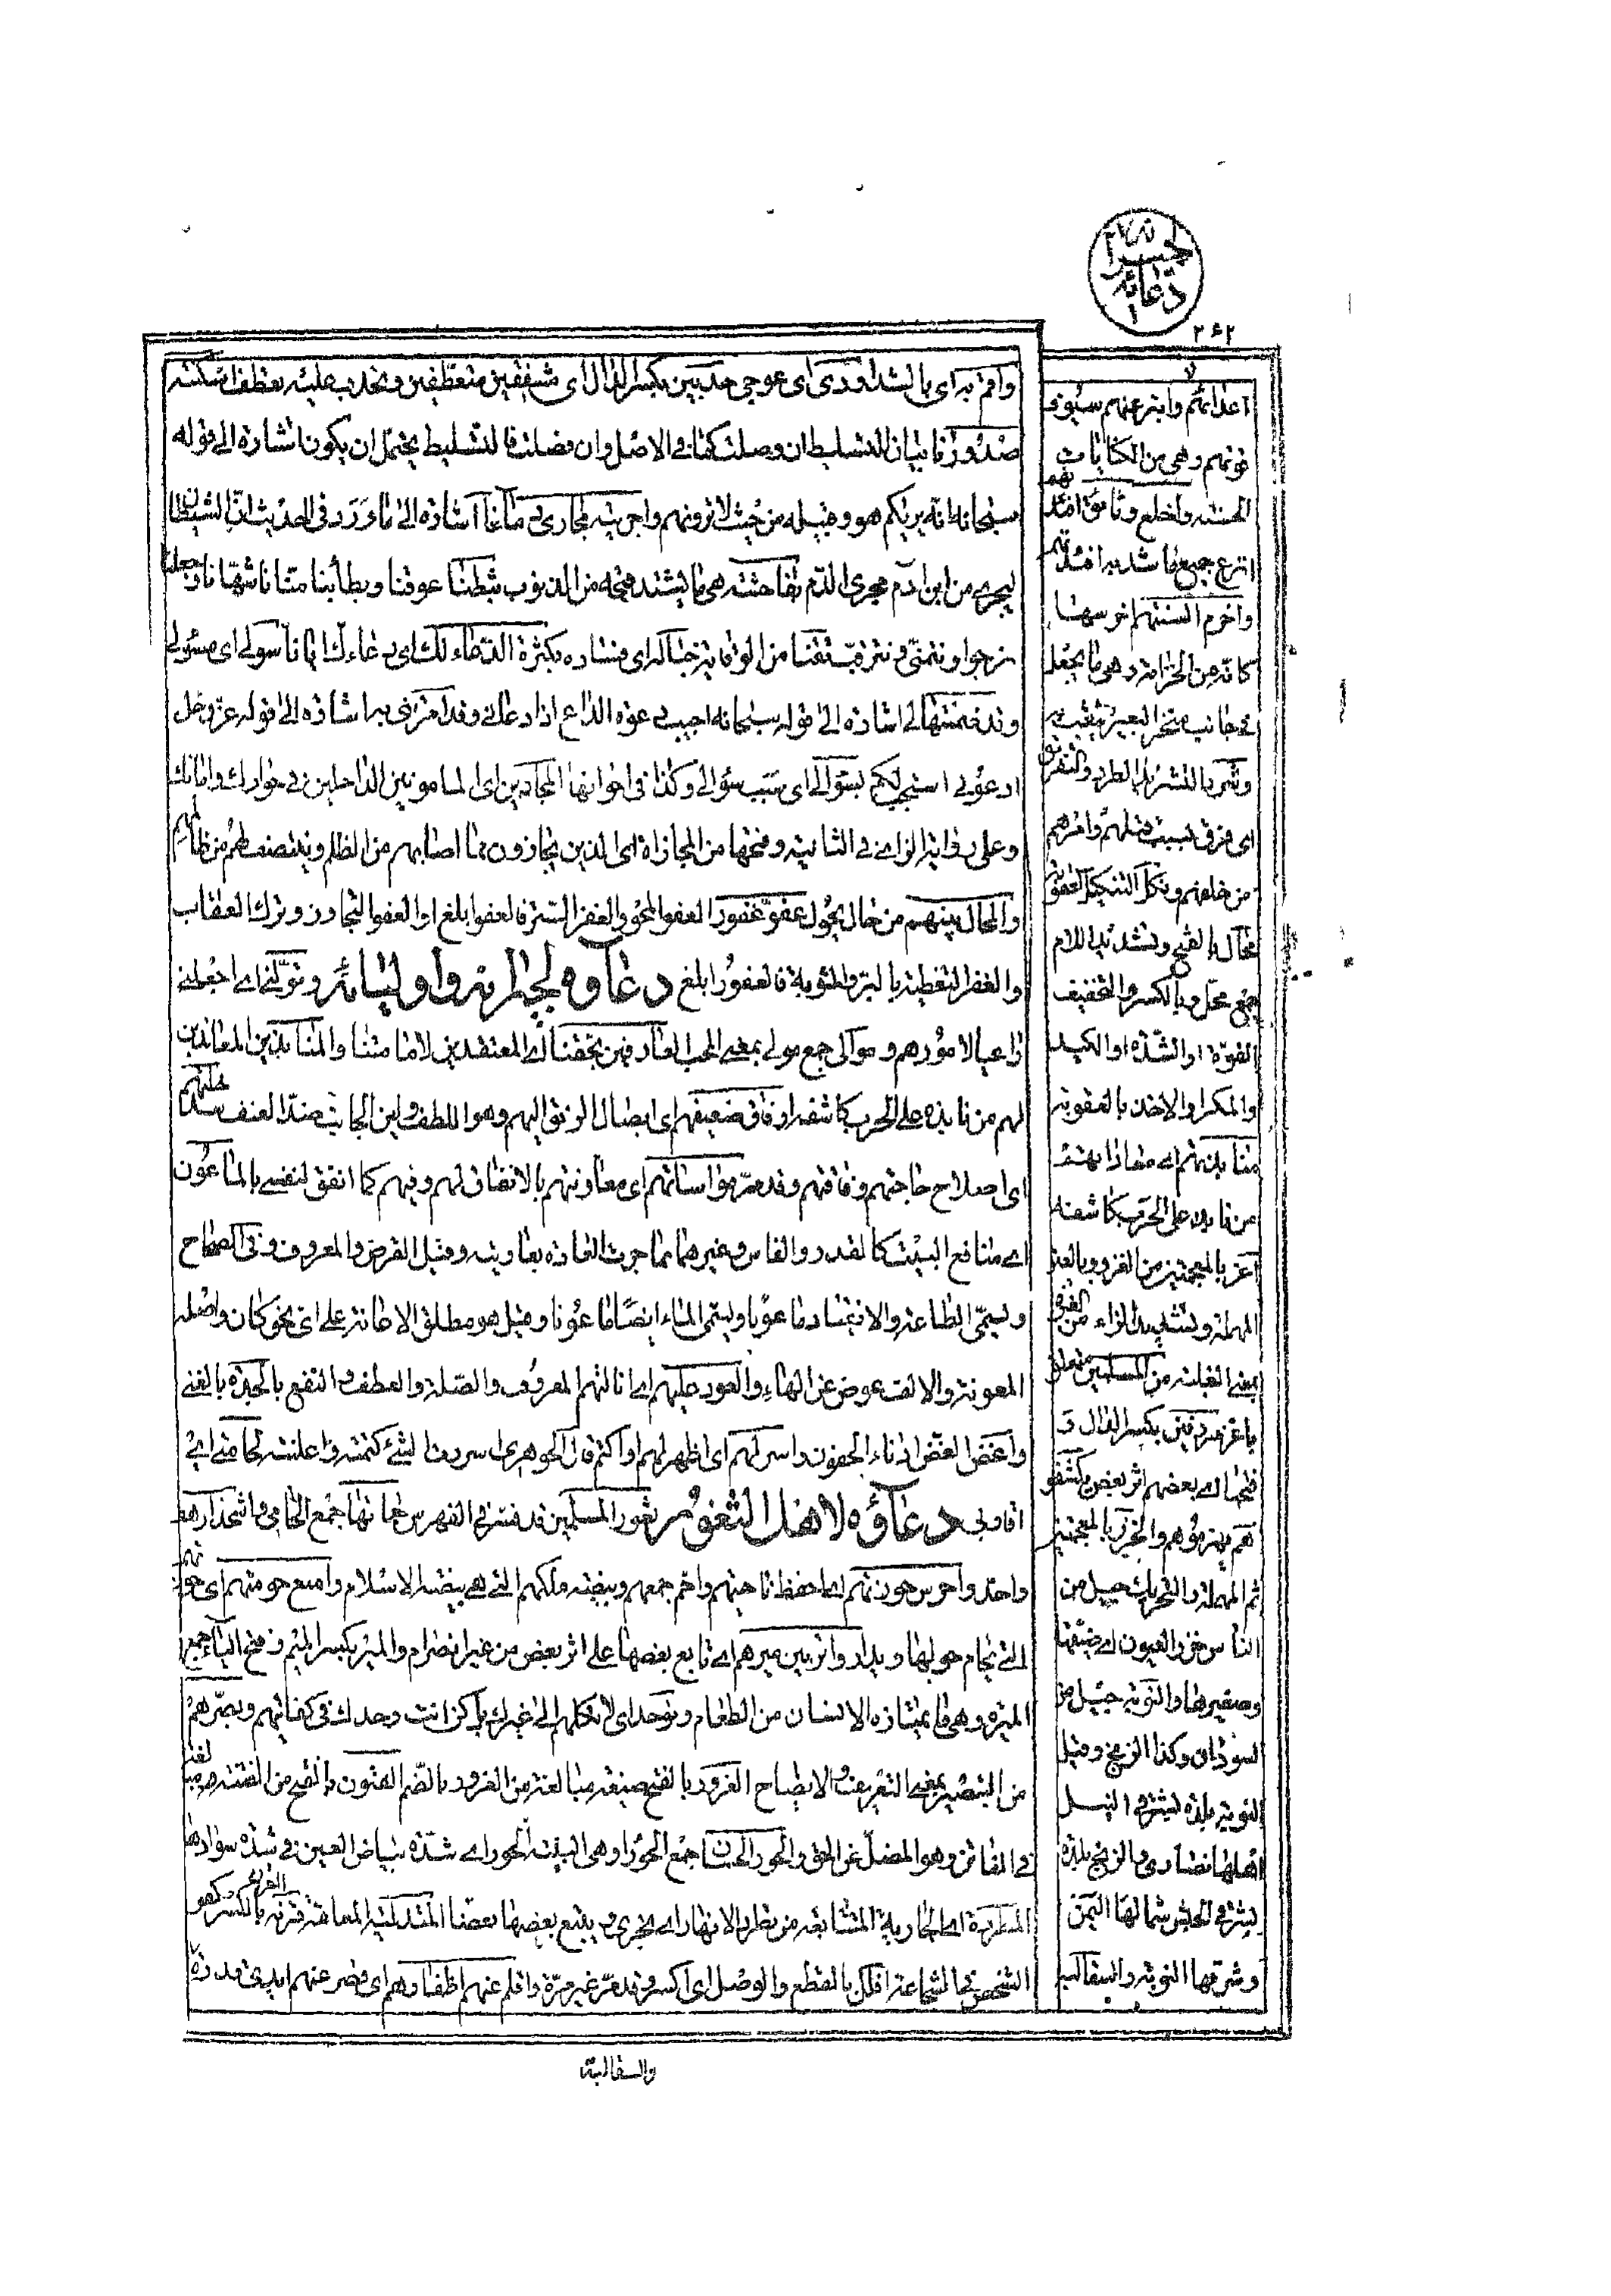 لجيرانه
دعائه
٢٤٢
واقم به اى بالتشد اودى اى عوجى حدبين بكسر الدال اى مشفقين متعطفين وتحدب عليه تعطف اسكنته
صدورنا بيان للتسليط ان وصلت كما في الاصل وان فصلت فالتسليط يحتمل ان يكون اشارة الى قوله
سبحانه انه يريكم هو وقبيله من حيث لا ترونهم واجريته مجارى دمائنا اشارة الى ما ورد فى الحديث ان الشيطان
ليجرى من ابن ادم مجرى الدم بفاحشة هى ما يشتد قبحه من الذنوب ثبطنا عوقنا وبطأ بنا
نرجوا ونتمنى ونترقب تقنا من الوقاية خباله اى فساده بكثرة الدعاء لك اى بدعاءك ايانا سولى اى مسئولى
وقد ضمنتها لى اشارة الى قوله سبحانه اجيب دعوة الداع اذا دعان وقد امرتنى به اشارة الى قوله عز وجل
ادعونى استجب لكم بسؤالى اى بسبب سؤالى وكذا فى اخواتها المجارين اى المامونين الداخلين فى جوارك وامانك
وعلى رواية الزاى فى الثانية وفتحها من المجازاة اى الذين يجازون مما اصابهم من الظلم وينتصف لهم من ظالمهم
والحال بينهم من حال يحول عفو غفور العفو المحو والغفر الستر فالعفو ابلغ او العفو التجاوز وترك العقاب
والغفر التغطية بالبر والمثوبة فالغفور ابلغ دعاؤه لجيرانه واوليائه وتولنى اى اجعلنى
راعيا لامورهم وموالى جمع مولى بمعنى المحب العارفين بحقنا اى المعتقدين لامامتنا والمنابذين المعاندين
لهم من نابذه على الحرب كاشفه ارفاق ضعيفهم اى ايصال الرفق اليهم وهو اللطف ولين الجانب ضد العنف
اى اصلاح حاجتهم وفاقتهم وقد مر مواساتهم اى معاونتهم بالانفاق لهم وفيهم كما انفق لنفسى بالماعون
اى منافع البيت كالقدر والفاس وغيرهما مما جرت العادة بعاريته وقيل القرض والمعروف وفى الصحاح
ويسمى الطاعة والانقياد ماعونا ويسمى الماء ايضا ماعونا وقيل هو مطلق الاعانة على اى نحو كان واصله
المعونة والالف عوض عن الهاء والعود عليهم اى انالتهم المعروف والصلة والعطف والنفع بالجدة بالغنى
واغض الغض ادناء الجفون واسر لهم اى اظهر لهم او اكتم قال الجوهرى اسررت الشئ كتمته واعلنته لحامتى اى
اقاربى دعاؤه لاهل الثغور ثغور المسلمين قد فسر فى الفهرس حماتها جمع الحامى واشحذ ارهف
واحد واحرس حوزتهم اى احفظ ناحيتهم واحم جمعهم وبيضة ملكهم التى هى بيضة الاسلام وامنع حومتهم اى حوزتهم
التى يحام حولها وبدل وواتر بين ميرهم اى تابع بعضها على اثر بعض من غير انصرام والمير بكسر الميم وفتح الياء جمع
الميرة وهى ما يمتازه الانسان من الطعام وتوحد اى لا تكلهم الى غيرك بل كن انت وحدك فى كفايتهم وبصرهم
من التبصير بمعنى التعريف والايضاح الغرور بالفتح صيغة مبالغة من الغرور بالضم الفتون بالفتح من الفتنة
فى المفاتن وهو المضل عن الحق والحور الحسان جمع الحوراء وهى البينة الحور اى شدة بياض العين فى شدة سوادها
المطردة اى الجارية المتتابعة من تطرد الانهار اى تجرى ويتبع بعضها بعضا المتدلية المعاهد قرنه بالكسر كفو
الشخص فى الشجاعة افلل بالقطع والوصل اى اكسر وقد مر غير مرة واقلم عنهم اظفارهم اى قصر عنهم ايدى
اعدائهم وانزع عنهم سيوف
قوتهم وهى من الكنايات
الحسنة واخلع وثائق افئدتهم
انزع جميع ما شد به افئدتهم
واخرم السنتهم اخرسها
كانه من الخزامة وهى ما يجعل
فى جانب منخر البعير يثقب به
وشرد بالتشريد الطرد والتفريق
اى فرق بسبب قتلهم وامرهم
من خلفهم ونكل التنكيل العقوبة
محال بالفتح وتشديد اللام
جمع محل وبالكسر والتخفيف
القوة او الشدة او الكيد
والمكر او الاخذ بالعقوبة
منابذتهم اى معاداتهم
من نابذه على الحرب كاشفه
اغز بالمعجمتين من الغزو وبالعين
المهملة وتشديد الزاء من العزة
بمعنى الغلبة من المسلمين متعلق
باغز مردفين بكسر الدال و
فتحها اى بعضهم اثر بعض يكشفوهم
يهزموهم والخزر بالمعجمتين
ثم المهملة والتحريك جيل من
الناس خزر العيون اى ضيقها
وصغيرها والنوبة جيل من
السودان وكذا الزنج وقيل
النوبة بلدة بشرقى النيل
اهلها نصارى والزنج بلدة
بشرقى الحبش شمالها اليمن
وشرقها النوبة والسقالبة
والسقالبة